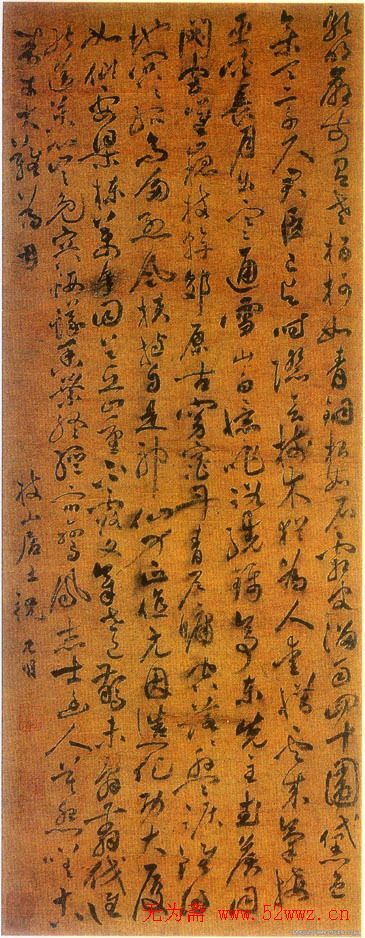 孔明廟前有老柏柯如青銅根如石霜皮溜雨四十圍黛色
參天二千尺君臣已與時際會樹木猶為人愛惜雲來氣接
巫峽長月出寒通雪山白憶昨路繞錦亭東先主武侯同
閟宮崔嵬枝幹郊原古窈窕丹青戶牖空落落盤踞雖得
地冥冥孤高多烈風扶持自是神仙力正直元因造化功大廈
如傾要梁棟萬年回首丘山重不露文章世已驚未辭翦伐誰
能送苦心豈免容螻蟻香葉終經宿鸞鳳志士幽人莫怨嗟古
來材大難為用
枝山居士祝允明
无为斋 www.52wwz.cn